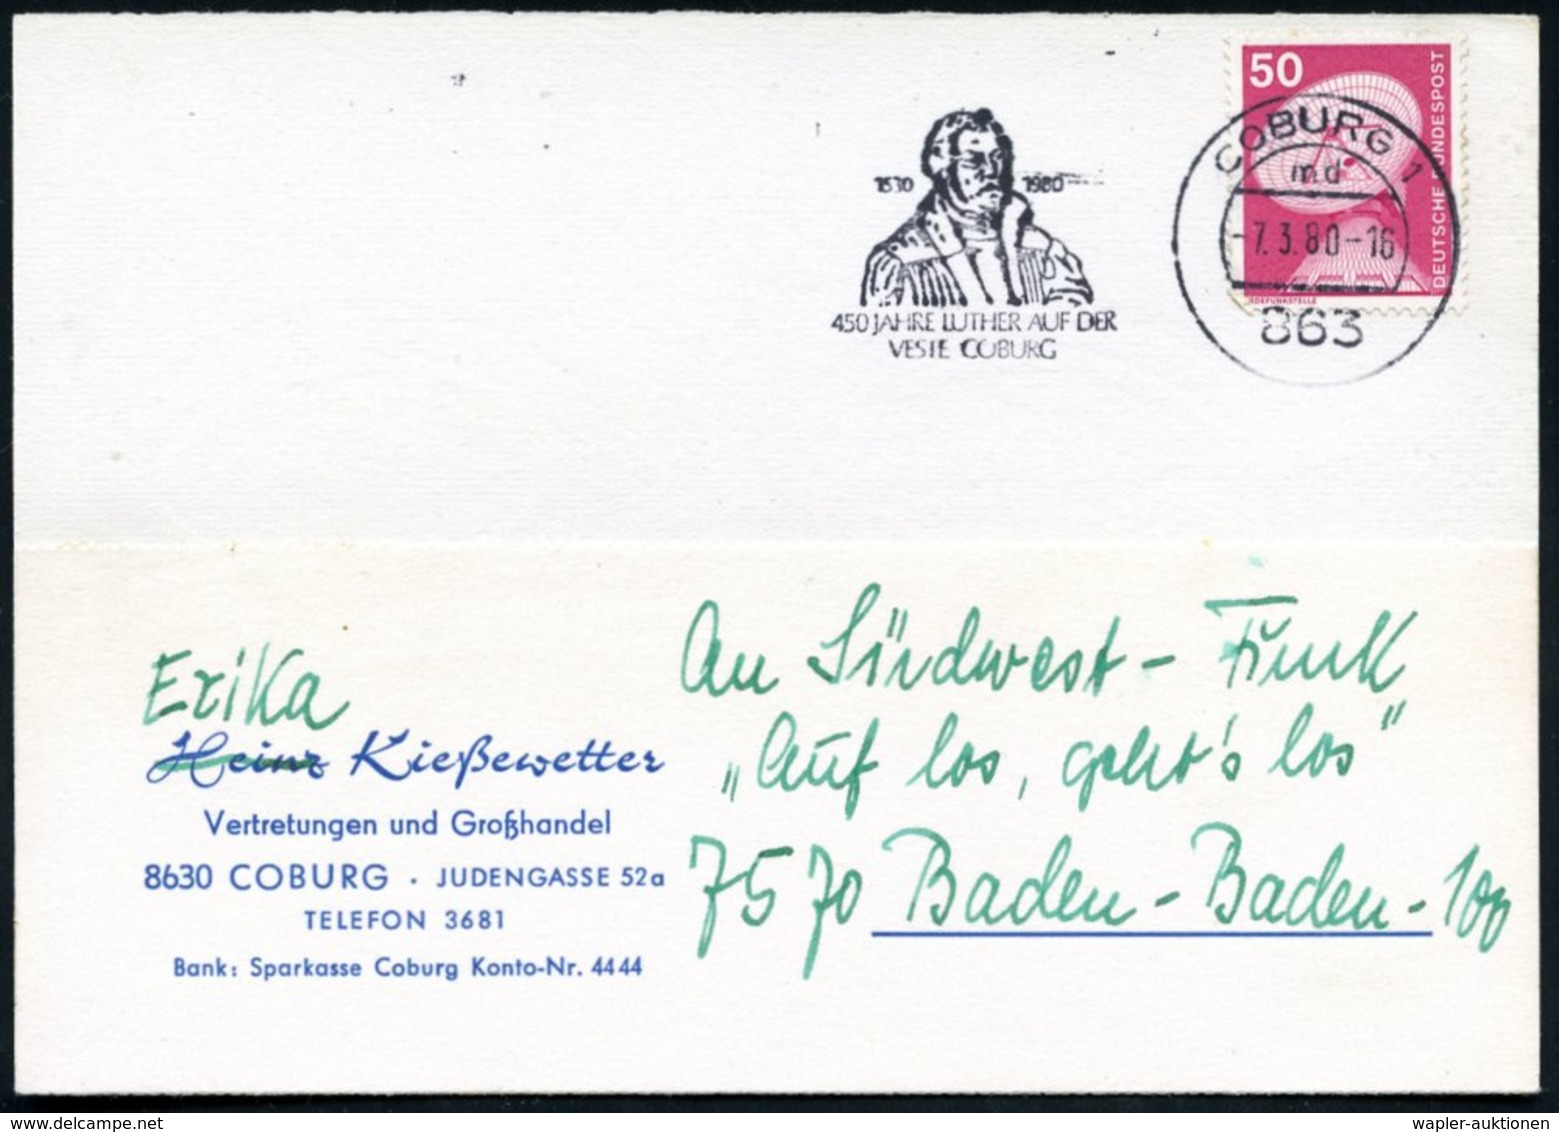 50
DEUTSCHE BUNDESPOST
ERDEFUNKSTELLE
COBURG 1
md
-7.3.80-16
863
1530 1980
450 JAHRE LUTHER AUF DER
VESTE COBURG
Erika
Heinz Kießewetter
Vertretungen und Großhandel
8630 COBURG · JUDENGASSE 52a
TELEFON 3681
Bank: Sparkasse Coburg Konto-Nr. 4444
An Südwest-Funk
„Auf los, geht's los"
7570 Baden-Baden-100
wapler-auktionen